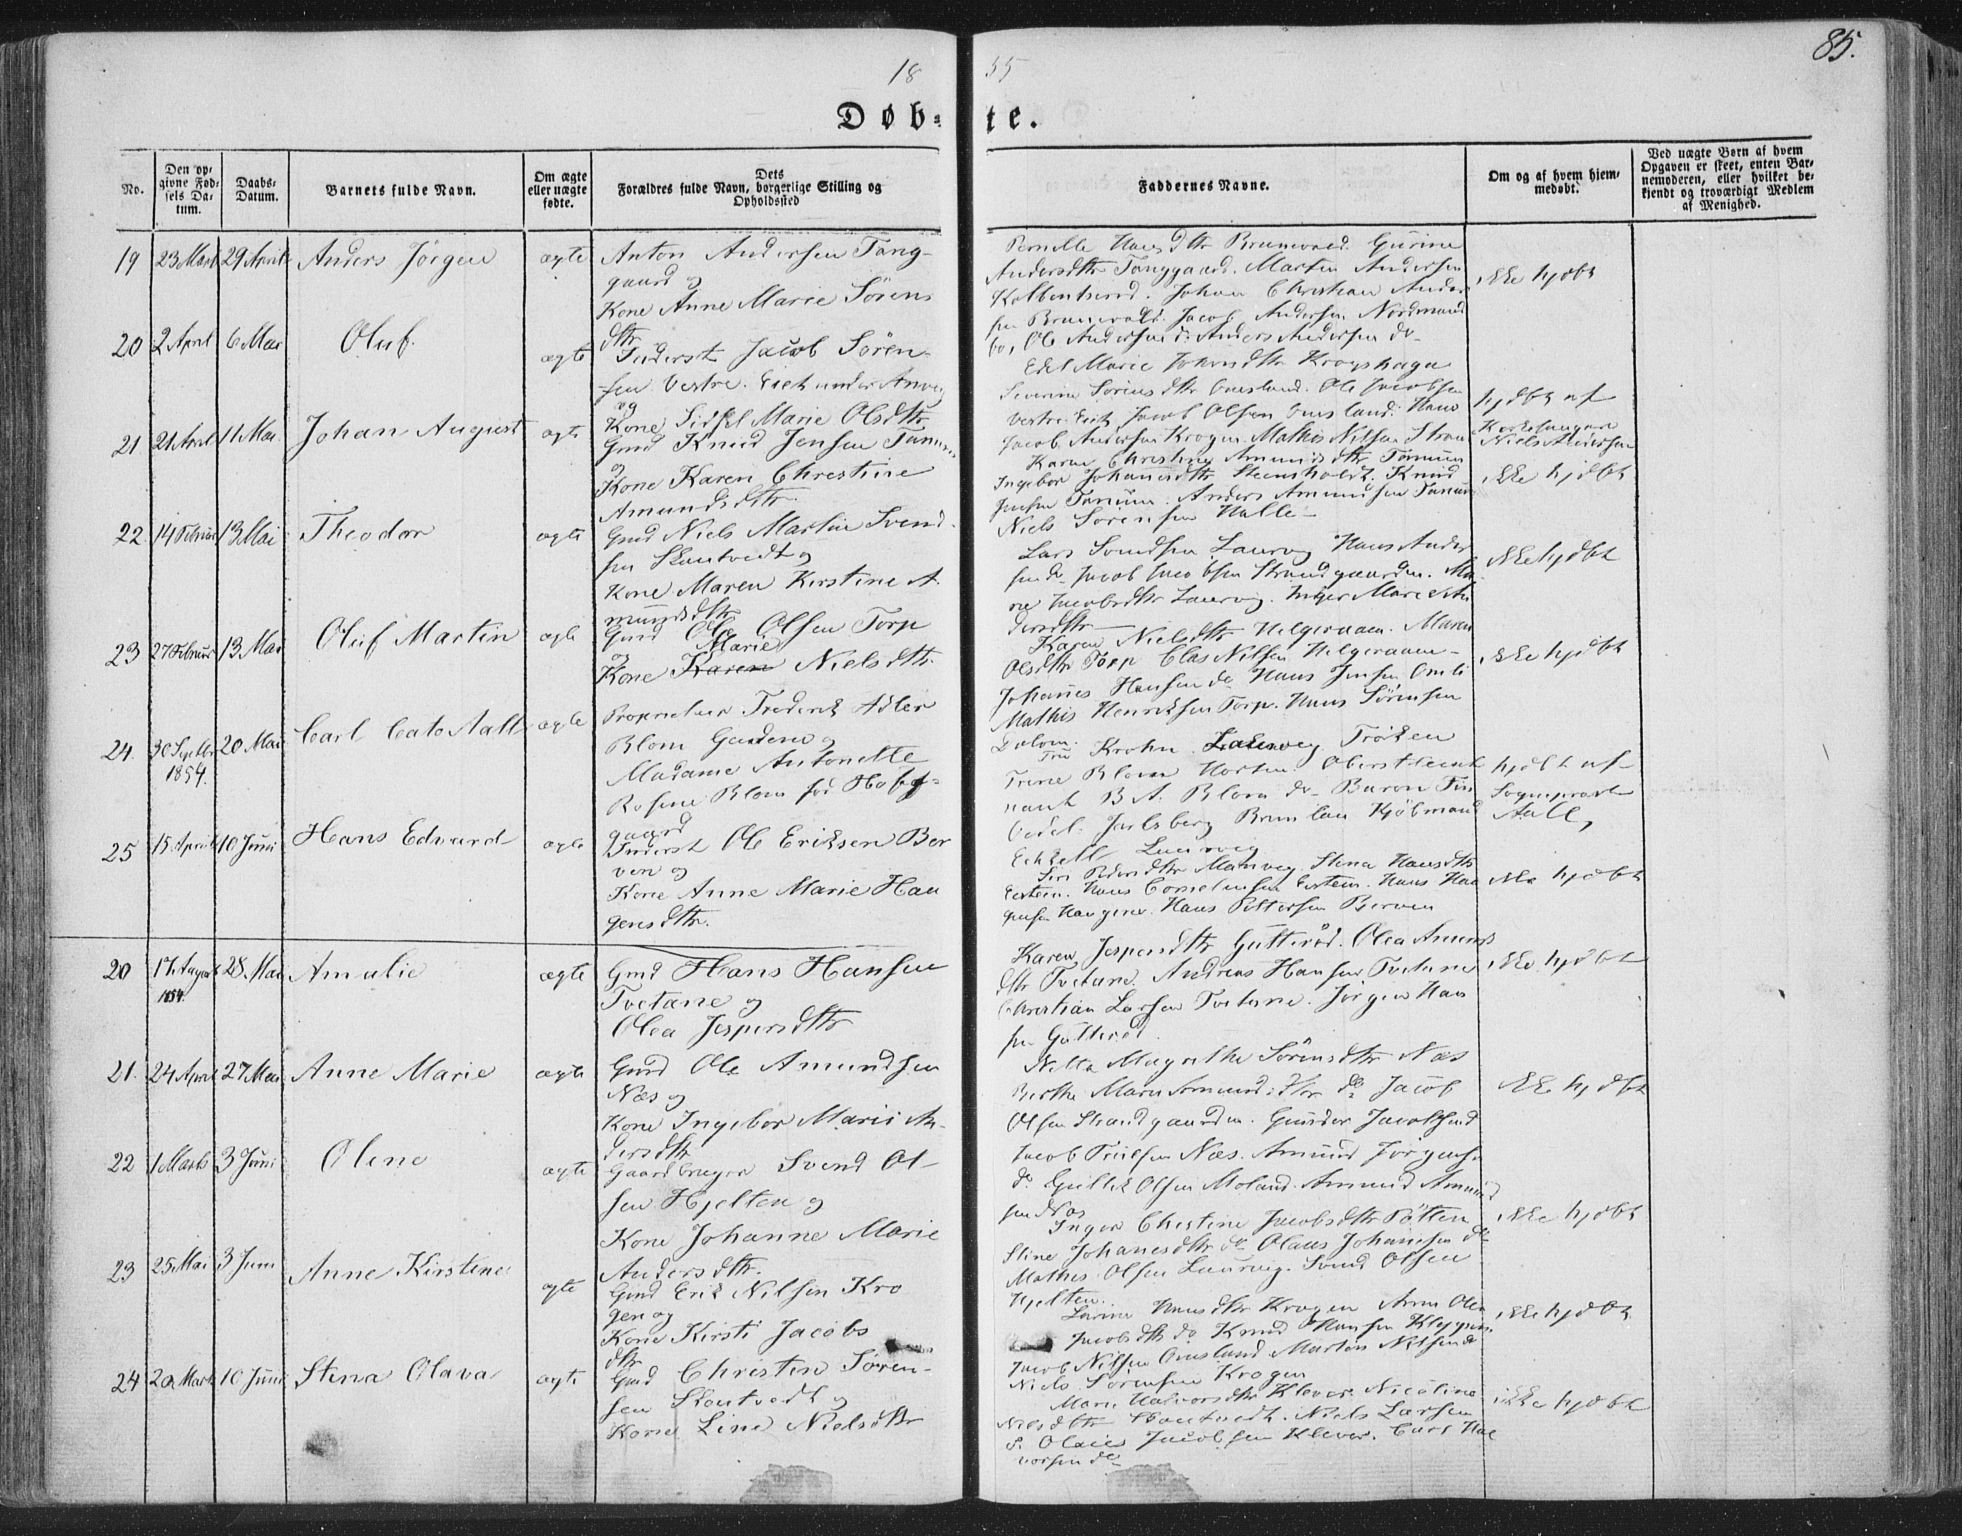 85.
18 55
Døb- te.
No.
Den opgivne Fødsels Datum.
Daabs-Datum.
Barnets fulde Navn.
Om ægte eller uægte fødte.
Dets Forældres fulde Navn, borgerlige Stilling og Opholdssted
Faddernes Navne.
Om og af hvem hjemmedøbt.
Ved uægte Børn af hvem Opgaven er skeet, enten Barnemoderen, eller hvilket bekjendt og troværdigt Medlem af Menighed.
19 23 Marts 29 April Anders Jörgen ægte
Anton Andersen Tang-
gaard og
Kone Anne Marie Sörens
dtr
Pernille Hansdtr Brunvald. Gurine
Andersdtr Tanggaard. Martin Andersen
Johan Christian Ander
sen Brunvald. Jacob Andersen Nordmand
bo, Ole Andersen do Anders Andersen do
ikke hjdbt
20 2 April 6 Mai Oluf. ægte
Inderst Jacob Sören-
sen Vestre Eick under Anvey
og
Kone Sidsel Marie Olsdtr
Edel Marie Johnsdtr Krogshagn
Severine Sörensdtr Omsland. Ole Jacobsen
Vestre Eick Jacob Olsen Omsland. Hans
Jacob Andersen Krogen Mathis Nilsen
hjdbt af
Kirkesanger
Niels Andersen
21 21 April 11 Mai Johan August ægte
Gmd Knud Jensen Tanum
og
Kone Karen Christine
Amundsdtr.
Karen Christine Amundsdtr Tanum
Ingebor Johanesdtr Steensholdt. Knud
Jensen Tanum. Anders Amundsen Tanum
Niels Sörensen Halle
ikke hjdbt
22 14 Februar 13 Mai Theodor ægte
Gmd Niels Martin Svend-
sen Skautvedt og
Kone Maren Kirstine A-
mundsdtr
Lars Svendsen Laurvig Hans Ander
sen do Jacob Jacobsen Strandgaarden. Ma
ren Jacobsdtr Laurvig. Inger Marie An
dersdtr
ikke hjdbt
23 27 Februar 13 Mai Oluf Martin ægte
Gmd Ole Olsen Torp
og Marie
Kone Karen Nielsdtr.
Karen Nielsdtr Helgeroaen. Maren
Olsdtr Torp Clas Nilsen Helgeroaen-
Johanes Hansen do Hans Jensen Omli
Mathis Henriksen Torp. Hans Sörensen
Dolom.
ikke hjdbt
24. 30 Septbr 20 Mai Carl Cato Aall ægte
1854.
Proprietair Frederik Adler
Blom Gurdene og
Madame Antonette
Rosine Blom föd Hofg-
gaard
Fru Krohn Laurvig Fröken
Trine Blom Horten. Oberstleut
nant B A. Blom do Baron Fin
Vedel Jarlsberg Brunlan Kjöbmand
Laurvig
hjdbt af
Sogneprest
Aall,
25 15 April 10 Juni Hans Edvard ægte
Inderst Ole Eriksen Ber
ven og
Kone Anne Marie Hau
gensdtr.
Siri Pedersdtr Manvig Stena Hansdtr
Eestein. Hans Cornelinsen Eestein. Hans Hau
gensen Haugene. Hans Pettersen Berven
ikke hjdbt
20 17 August 28. Mai Amalie ægte
1854.
Gmd Hans Hansen
Tvetane og
Olea Jespersdtr
Karen Jespersdtr Gutteröd. Olea Amunds
dtr Tvetane. Andreas Hansen Tvetane
Christian Larsen Tvetene. Jörgen Han
sen Gutteröd.
ikke hjdbt
21. 24 April 27 Mai Anne Marie ægte
Gmd Ole Amundsen
Næs og
Kone Ingebor Marie An-
dersdtr
Nilla Magrethe Sörensdtr Næs
Berthe Marie Amundsdtr do Jacob
Olsen Strandgaarden. Gunder Jacobsen do
Jacob Truelsen Næs. Amund Jörgensen
do Gullik Olsen Moland. Amund Amund
sen Næs
ikke hjdbt
22 1 Marts 3 Juni Oline ægte
Gaardbruger Svend Ol-
sen Hjelten og
Kone Johanne Marie
Andersdtr.
Inger Christine Jacobsdtr Pötten
Stine Johanesdtr do Olaus Johanesen do
Mathis Olsen Laurvig. Svend Olsen
Hjelten.
ikke hjdbt
23 25 Mai 3 Juni Anne Kirstine ægte
Gmd Erik Nilsen Kro
gen og
Kone Kirsti Jacobs
dtr
Larine Hansdtr Krogen Anne Olea
Jacobsdtr do Knud Hansen
Jacob Nilsen Omsland. Martin Nilsen do
Niels Sörensen Krogen
ikke hjdbt
24 20 Marts 10 Juni Stena Olava ægte
Gmd Christen Sören-
sen Skautvedt og
Kone Line Nielsdtr
Maren Halvorsdtr Klever. Nicoline
Nilsdtr Skautvedt. Niels Larsen
S. Olaus Jacobsen Klever. Carl Hal
vorsen do
ikke hjdbt